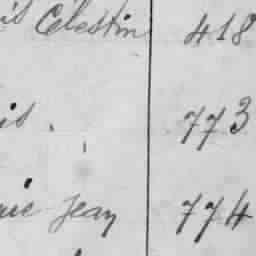 is Celestin 418
is. 773
rie Jean 774